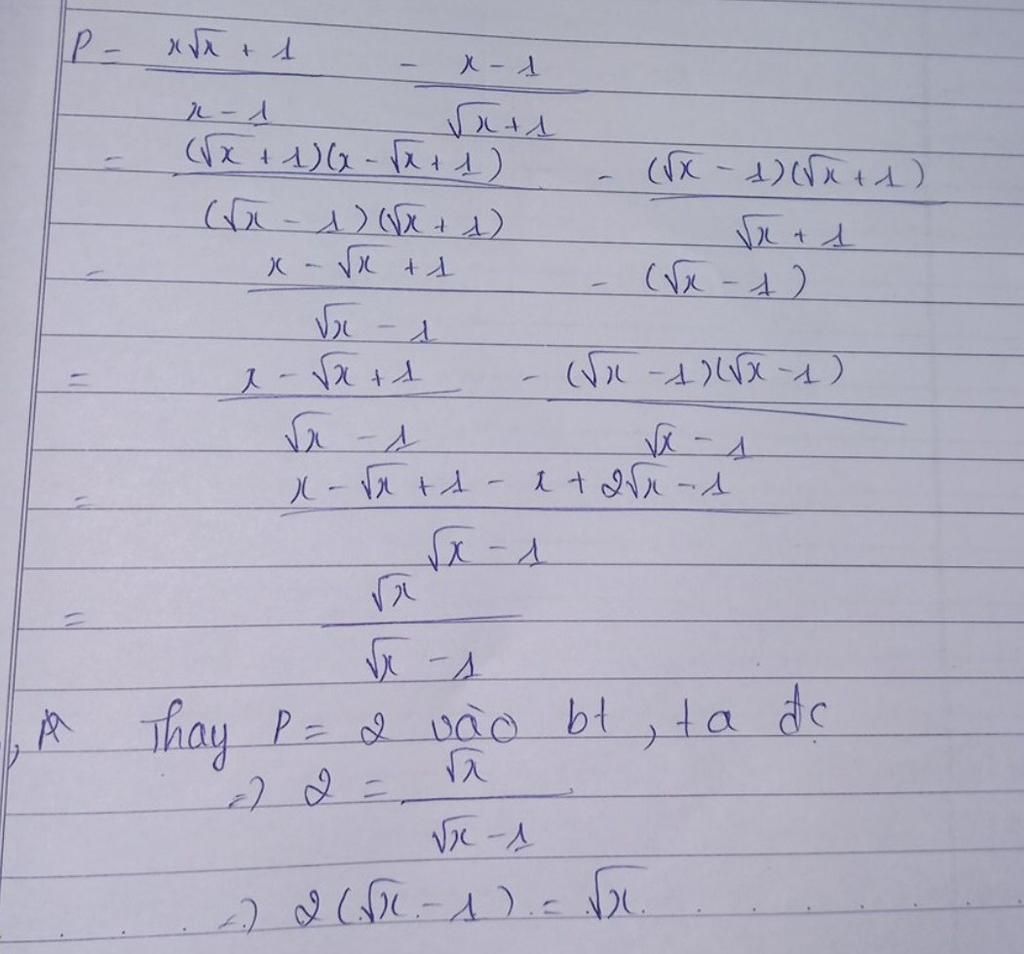 P = \frac{x\sqrt{x} + 1}{x - 1} - \frac{x - 1}{\sqrt{x} + 1}
= \frac{(\sqrt{x} + 1)(x - \sqrt{x} + 1)}{(\sqrt{x} - 1)(\sqrt{x} + 1)} - \frac{(\sqrt{x} - 1)(\sqrt{x} + 1)}{\sqrt{x} + 1}
= \frac{x - \sqrt{x} + 1}{\sqrt{x} - 1} - (\sqrt{x} - 1)
= \frac{x - \sqrt{x} + 1}{\sqrt{x} - 1} - \frac{(\sqrt{x} - 1)(\sqrt{x} - 1)}{\sqrt{x} - 1}
= \frac{x - \sqrt{x} + 1 - x + 2\sqrt{x} - 1}{\sqrt{x} - 1}
= \frac{\sqrt{x}}{\sqrt{x} - 1}
Thay P = 2 vào bt, ta đc
=> 2 = \frac{\sqrt{x}}{\sqrt{x} - 1}
=> 2(\sqrt{x} - 1) = \sqrt{x}